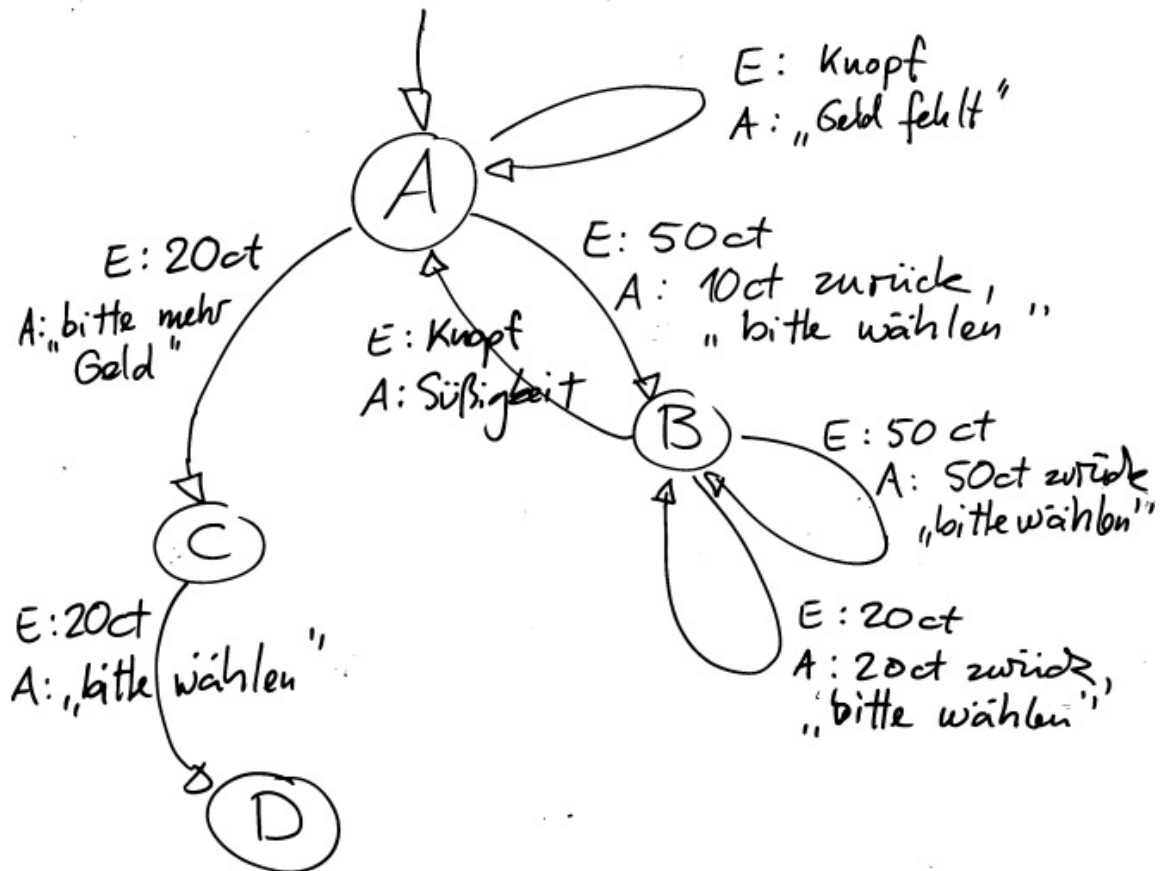 E: Knopf
A: „Geld fehlt"
A
E: 20ct
A: „bitte mehr
Geld"
E: 50ct
A: 10ct zurück,
„bitte wählen"
E: Knopf
A: Süßigkeit
B
E: 50 ct
A: 50ct zurück
„bitte wählen"
C
E: 20ct
A: „bitte wählen"
E: 20ct
A: 20ct zurück,
„bitte wählen"
D